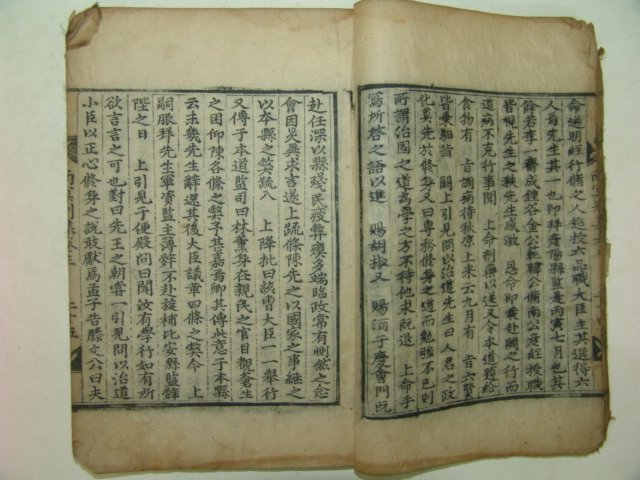 命選明經行脩之人超授六品職大臣主其選得六
人焉先生其一也即拜彦陽縣監是丙寅七月也其
餘若李一齋成健谷金公範韓公脩南公彦經授職
皆悅先生之秩先生感激 恩命即黃赴闕之行而
道病不克行事聞 上命劑藥以送又令本道題給
食物有 旨調病待秋凉上来云九月有 旨六賢
皆乗馹詣 闕上引見問以治道先生曰人君之政
化莫先於修身又曰專務修身之道而勉強不已則
所謂治國之道為學之方不待他求既退 上命手
寫所啓之語以進 賜胡椒又 賜酒于慶會門既
赴任深以縣殘民疲弊瘼多端臨政常有惻然之念
會因災異求言遂上疏條陳先之以國家之事継之
以本縣之獘疏入 上降批曰該曹大臣一一舉行
又傳于本道監司曰林薰身在親民之官目覩蒼生
之困仰陳各條之獘予甚嘉焉卿其傳此意于本縣
云未幾先生辭遆其後大臣議革四條之獘今 上
嗣服拜先生軍資監主薄辭不赴旋補比安縣監辭
陛之日 上引見于便殿問曰聞汝有學行如有所
欲言言之可也對曰先王之朝嘗一引見問以治道
小臣以正心修身之說敢獻焉孟子告滕文公曰夫